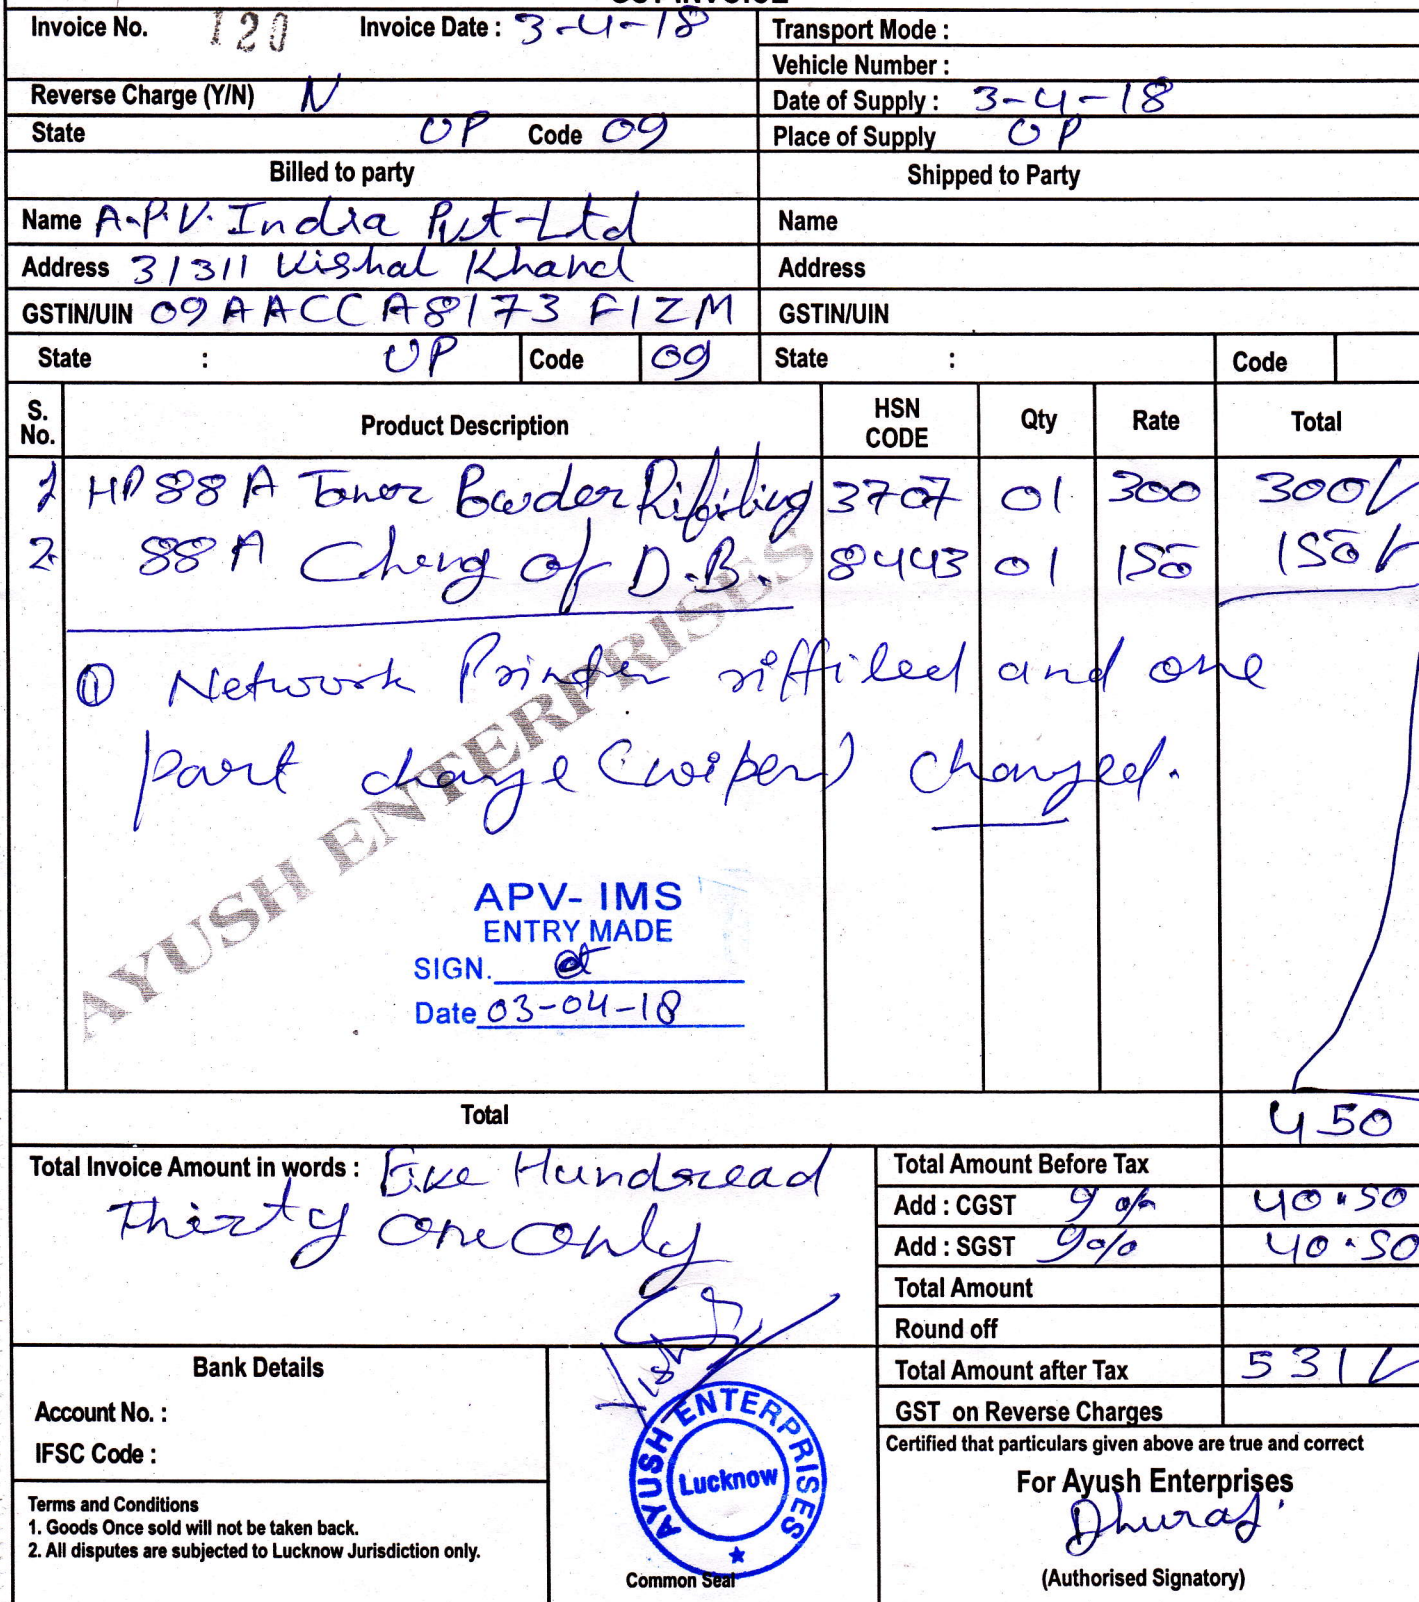 Invoice No. 120 Invoice Date : 3-4-18
Transport Mode :
Vehicle Number :
Reverse Charge (Y/N) N
Date of Supply : 3-4-18
State UP Code 09
Place of Supply UP
Billed to party
Shipped to Party
Name A.P.V. India Pvt-Ltd
Name
Address 3/311 Vishal Khand
Address
GSTIN/UIN 09AACCA8173F1ZM
GSTIN/UIN
State : UP Code 09
State : Code
S. No. Product Description HSN CODE Qty Rate Total
1 HP 88 A Toner Powder Rifiling 3707 01 300 300/
2. 88 A Cheng of D.B. 8443 01 150 150/
① Network Printer riffiled and one
part change (wiper) changed.
AYUSH ENTERPRISES
APV- IMS
ENTRY MADE
SIGN.
Date 03-04-18
Total 450
Total Invoice Amount in words : Five Hundread
Thirty One Only
Total Amount Before Tax
Add : CGST 9% 40.50
Add : SGST 9% 40.50
Total Amount
Round off
Total Amount after Tax 531/
GST on Reverse Charges
Bank Details
Account No. :
IFSC Code :
Terms and Conditions
1. Goods Once sold will not be taken back.
2. All disputes are subjected to Lucknow Jurisdiction only.
AYUSH ENTERPRISES
Lucknow
Common Seal
Certified that particulars given above are true and correct
For Ayush Enterprises
Dhuraj
(Authorised Signatory)